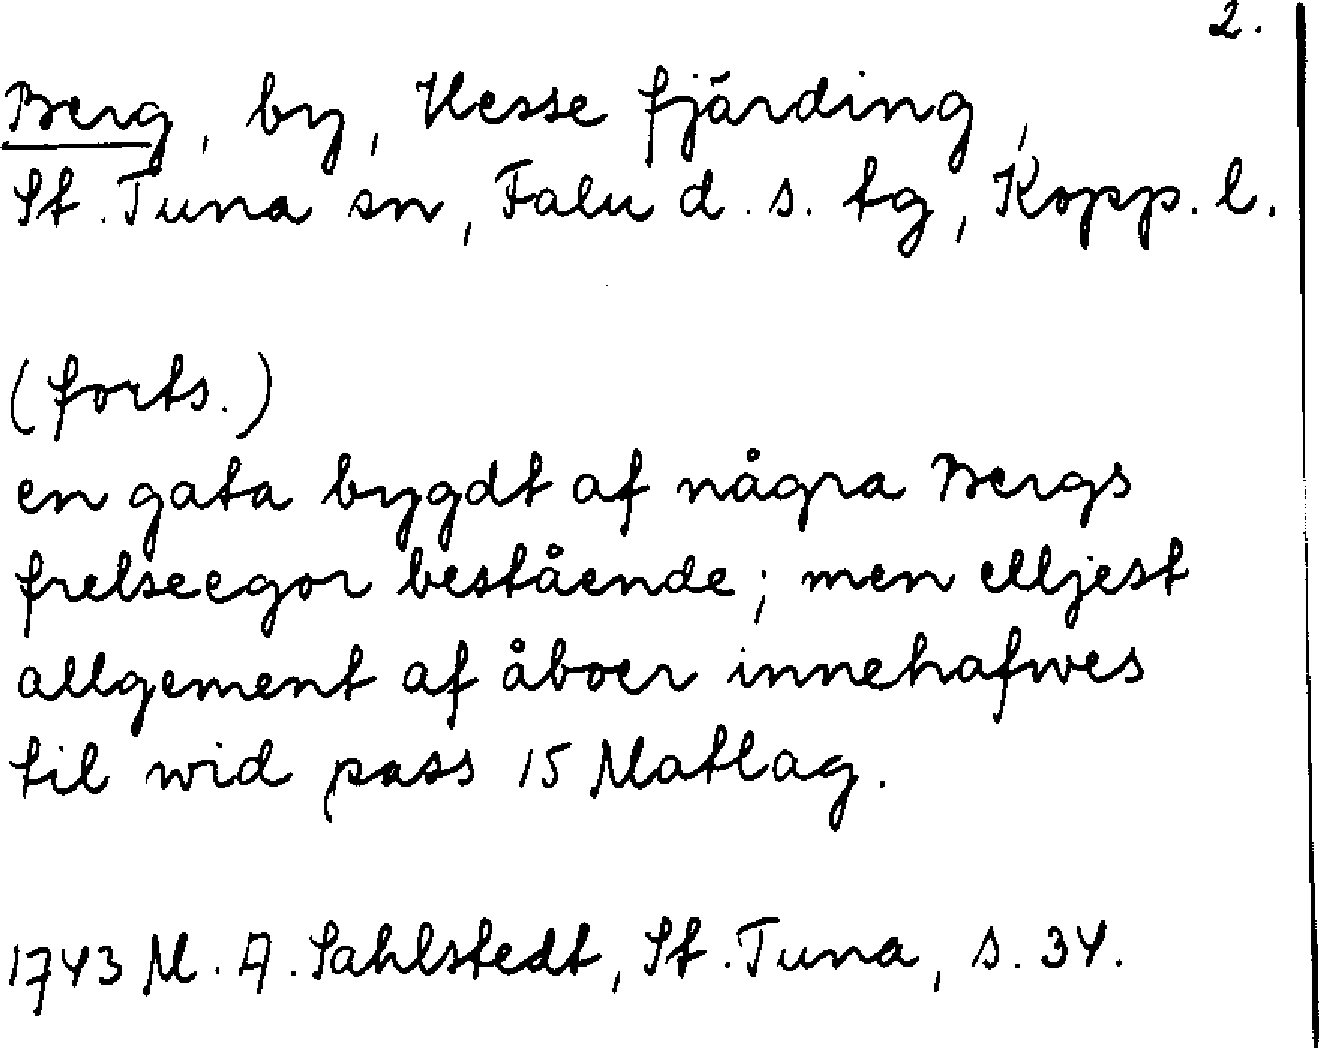 2.
Berg, by, Uesse fjärding,
St. Tuna sn, Falu d. s. tg, Kopp. l.
(forts.)
en gata bygdt af några Bergs
frelseegor bestående; men elljest
allgement af åboer innehafwes
til wid pass 15 Matlag.
1743 M. A. Sahlstedt, St. Tuna, s. 34.